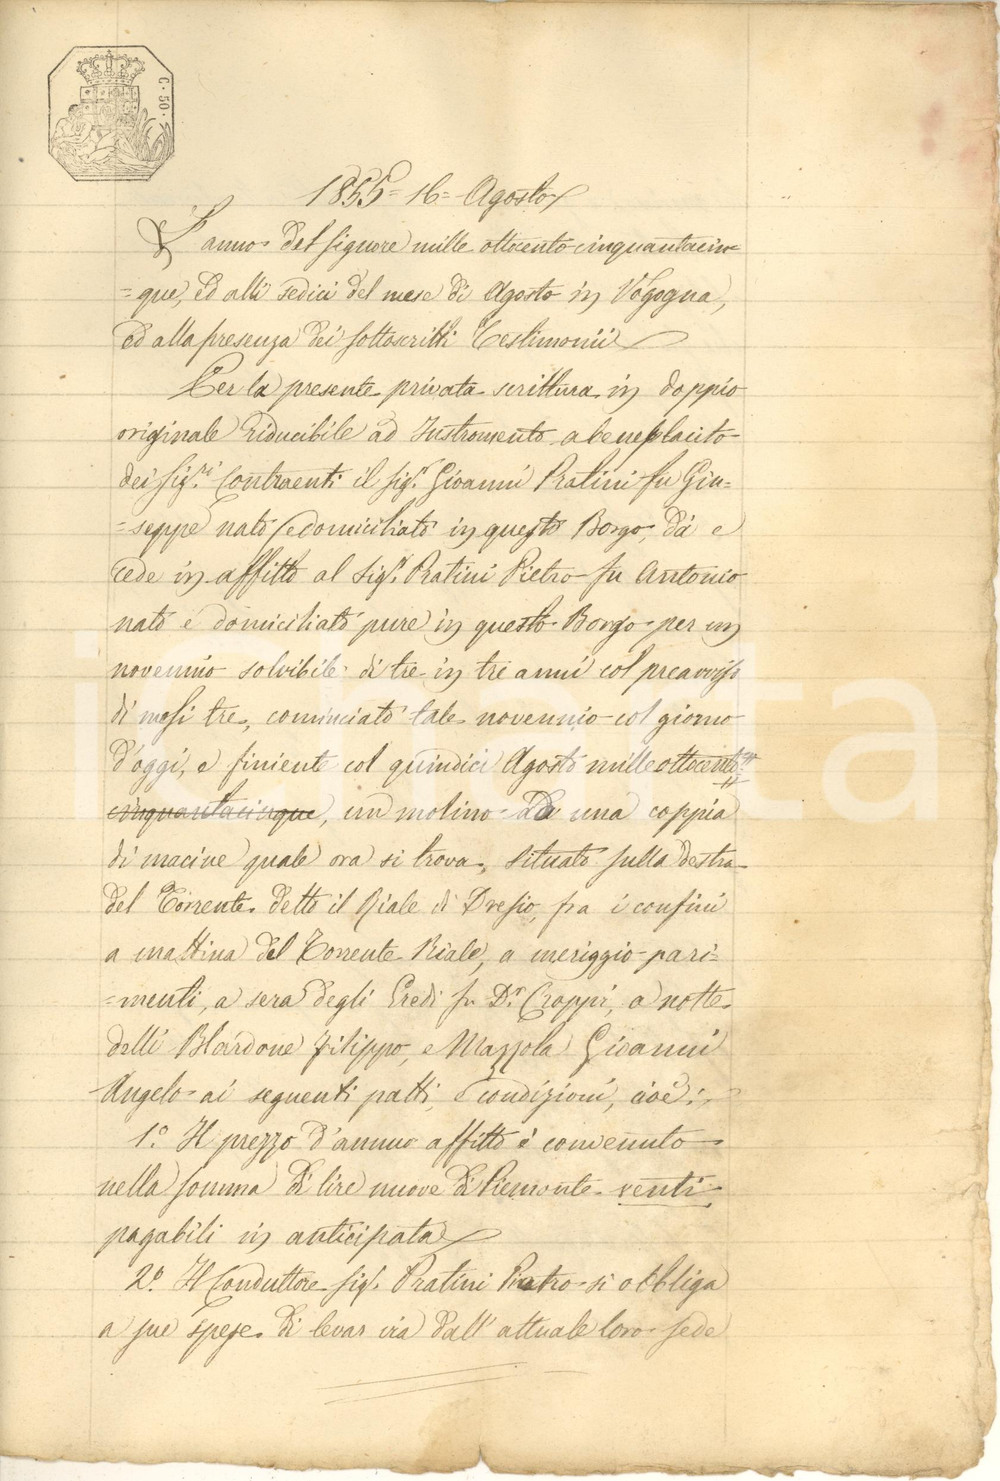 C. 50.
1855 = 16 = Agosto
L'anno del Signore mille ottocento cinquantacin=
=que, ed alli sedici del mese di Agosto in Vogogna,
ed alla presenza dei sottoscritti Testimonii
Per la presente privata scrittura in doppio
originale riducibile ad Instromento a beneplacito
dei Sig.ri Contraenti il Sig.r Gioanni Pratini fu Giu=
=seppe nato e domiciliato in questo Borgo, dà e
cede in affitto al Sig.r Pratini Pietro fu Antonio
nato e domiciliato pure in questo Borgo per un
novennio solvibile di tre in tre anni col preavviso
di mesi tre, cominciato tale novennio col giorno
d'oggi, e finiente col quindici Agosto mille ottocento
cinquantacinque, un molino da una coppia
di macine quale ora si trova, situato sulla destra
del Torrente detto il Riale di Dresio, fra i confini
a mattina del Torrente Riale, a meriggio pari=
=menti, a sera degli Eredi fu D.r Croppi, a notte
delli Blardone Filippo, e Mazzola Gioanni
Angelo ai seguenti patti, e condizioni, cioè:
1.° Il prezzo d'annuo affitto è convenuto
nella somma di lire nuove di Piemonte venti
pagabili in anticipata
2.° Il Conduttore Sig.r Pratini Pietro si obbliga
a sue spese di levar via dall'attuale loro sede